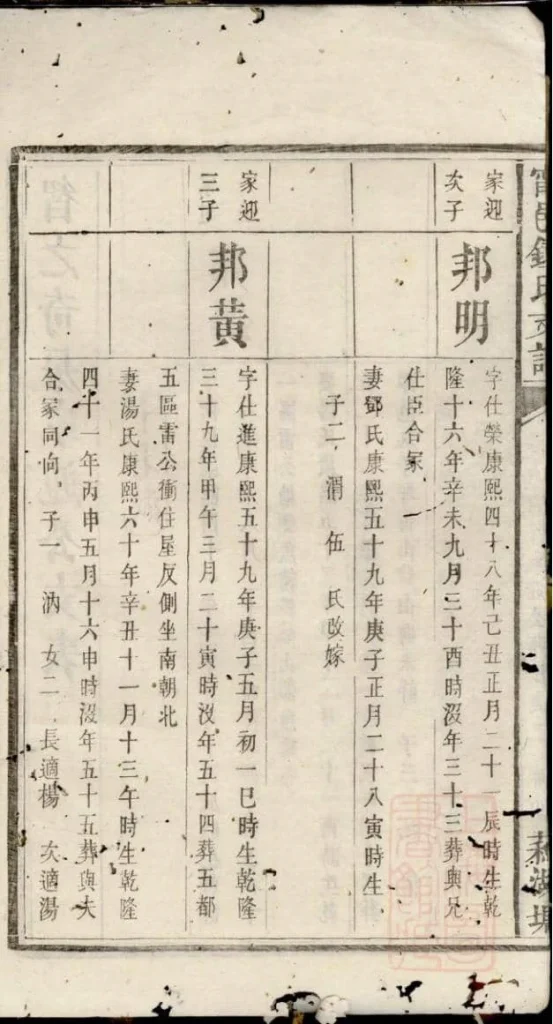 甯邑鍾氏支譜
家迎
次子
邦明
字仕榮康熙四十八年己丑正月二十一辰時生乾
隆十六年辛未九月三十酉時沒年三十三葬與兄
仕臣合冢
妻鄧氏康熙五十九年庚子正月二十八寅時生
子二 渭 伍 氏改嫁
家迎
三子
邦黃
字仕進康熙五十九年庚子五月初一巳時生乾隆
三十九年甲午三月二十寅時沒年五十四葬五都
五區雷公衝住屋反側坐南朝北
妻湯氏康熙六十年辛丑十一月十三午時生乾隆
四十一年丙申五月十六申時沒年五十五葬與夫
合冢同向 子一 汭 女二 長適楊 次適湯